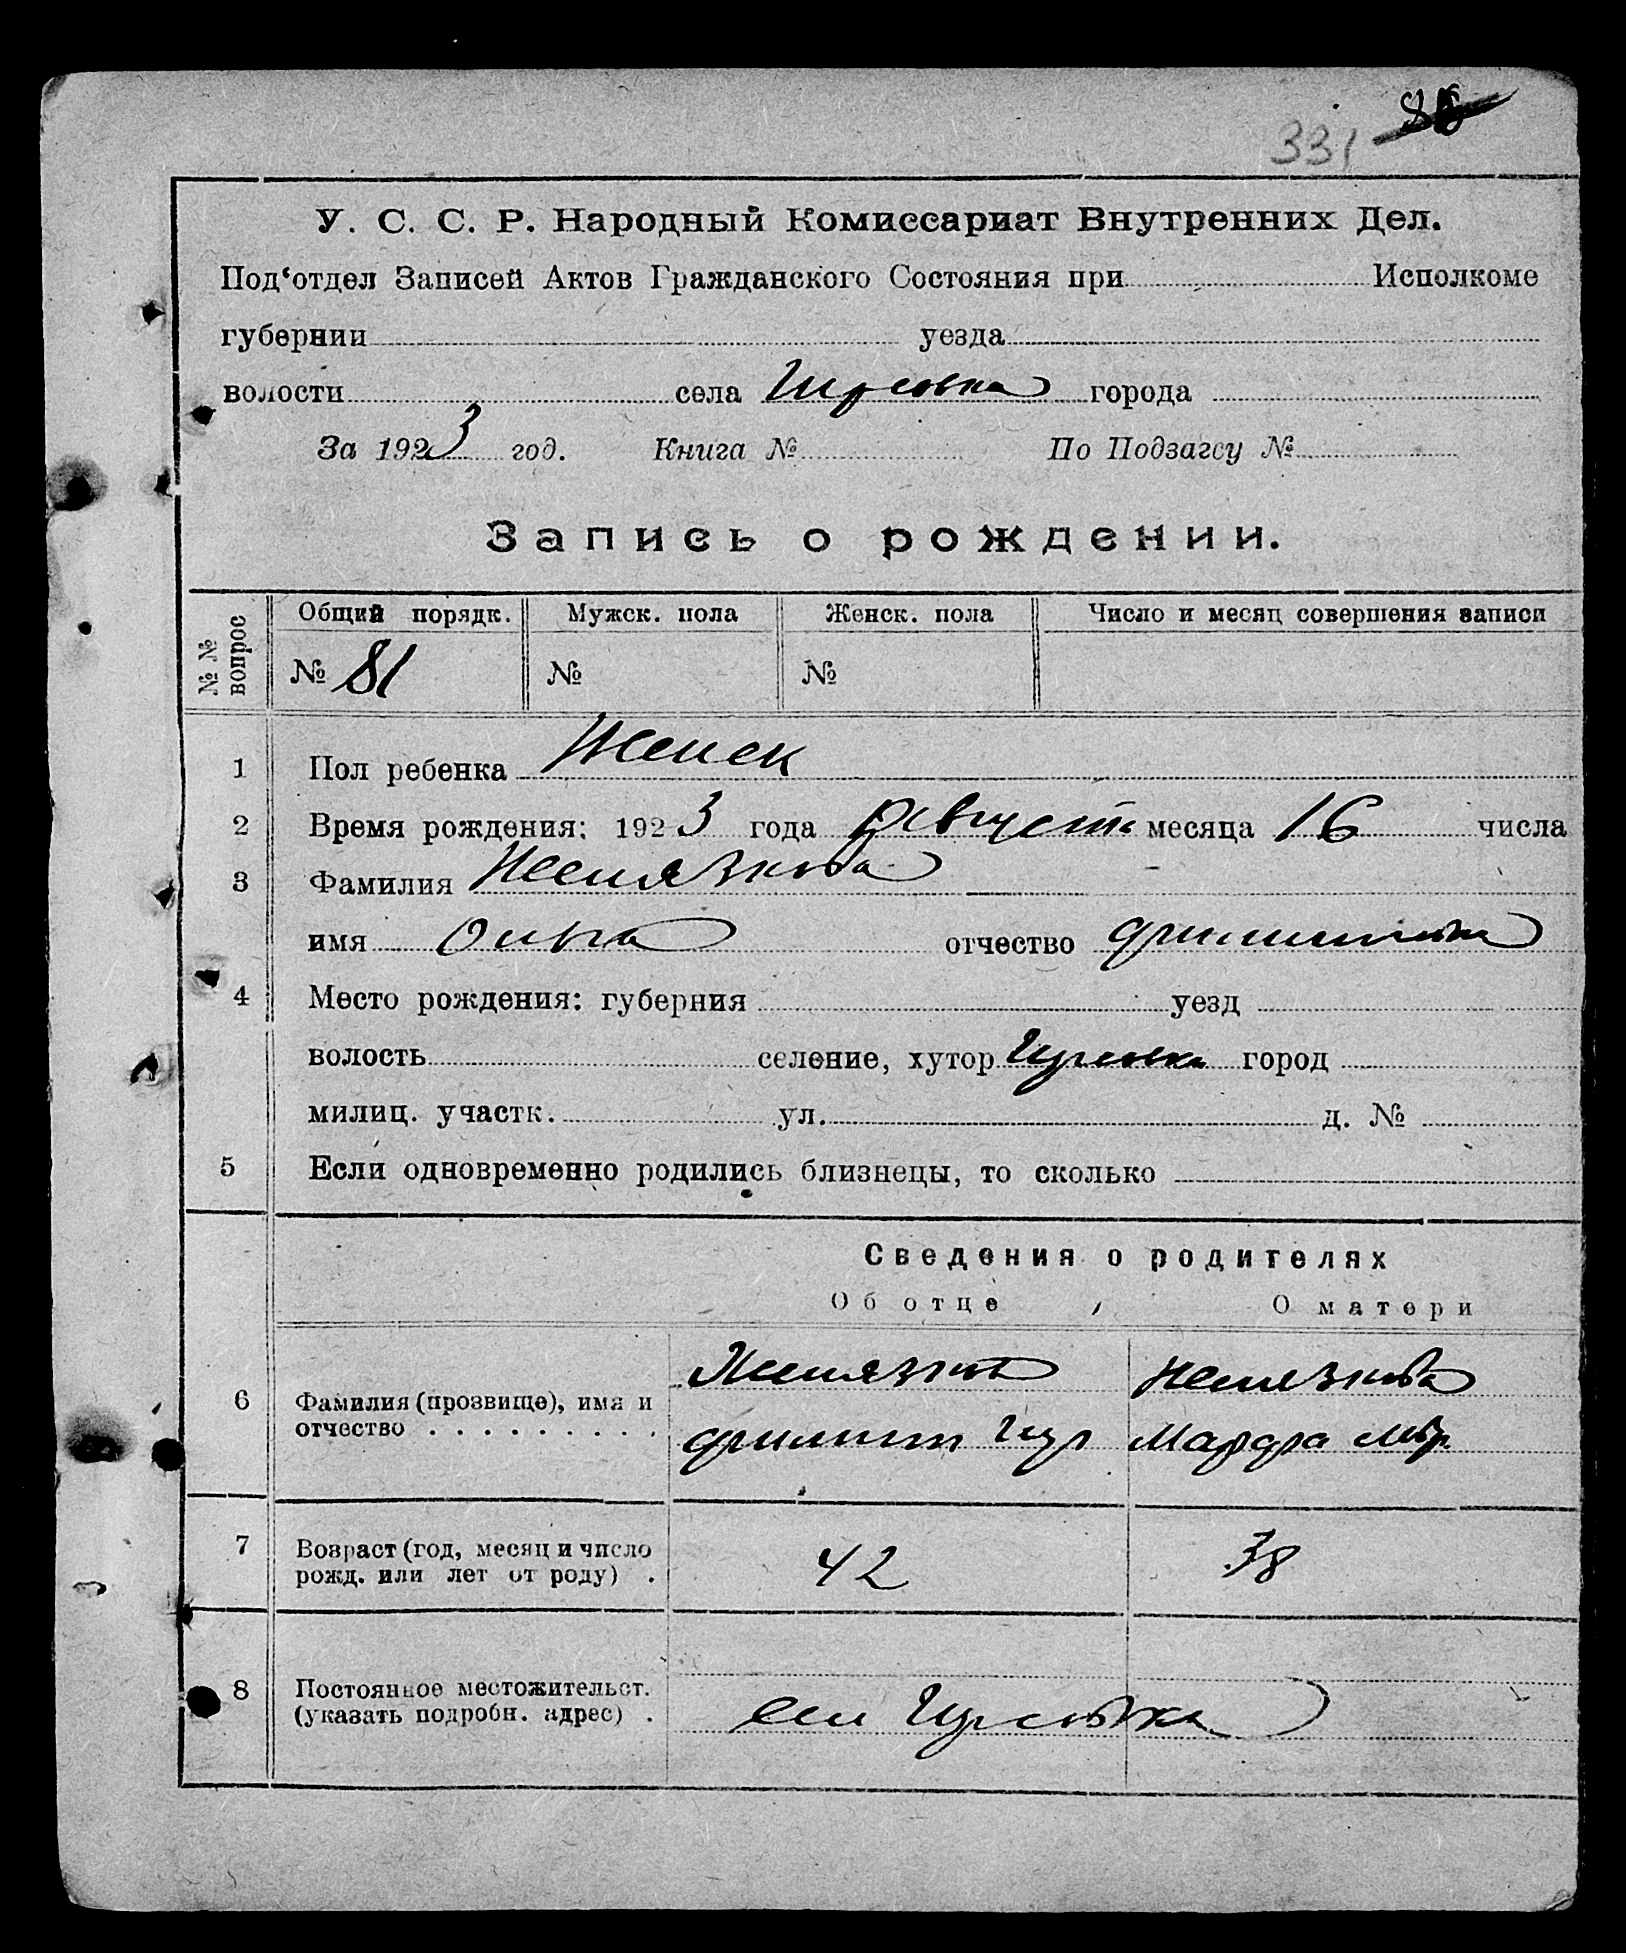 331 86
У. С. С. Р. Народный Комиссариат Внутренних Дел.
Под‘отдел Записей Актов Гражданского Состояния при Исполкоме
губернии уезда
волости села города
За 1923 год. Книга № По Подзагсу №
Запись о рождении.
№№ вопрос Общий порядк. Мужск. пола Женск. пола Число и месяц совершения записи
№ 81 № №
1 Пол ребенка Женск
2 Время рождения: 1923 года Август месяца 16 числа
3 Фамилия
имя отчество
4 Место рождения: губерния уезд
волость селение, хутор город
милиц. участк. ул. д. №
5 Если одновременно родились близнецы, то сколько
Сведения о родителях
Об отце О матери
6 Фамилия (прозвище), имя и
отчество . . . . . . . . . Филипп Марфа
7 Возраст (год, месяц и число
рожд. или лет от роду) . 42 38
8 Постоянное местожительст.
(указать подробн. адрес) .